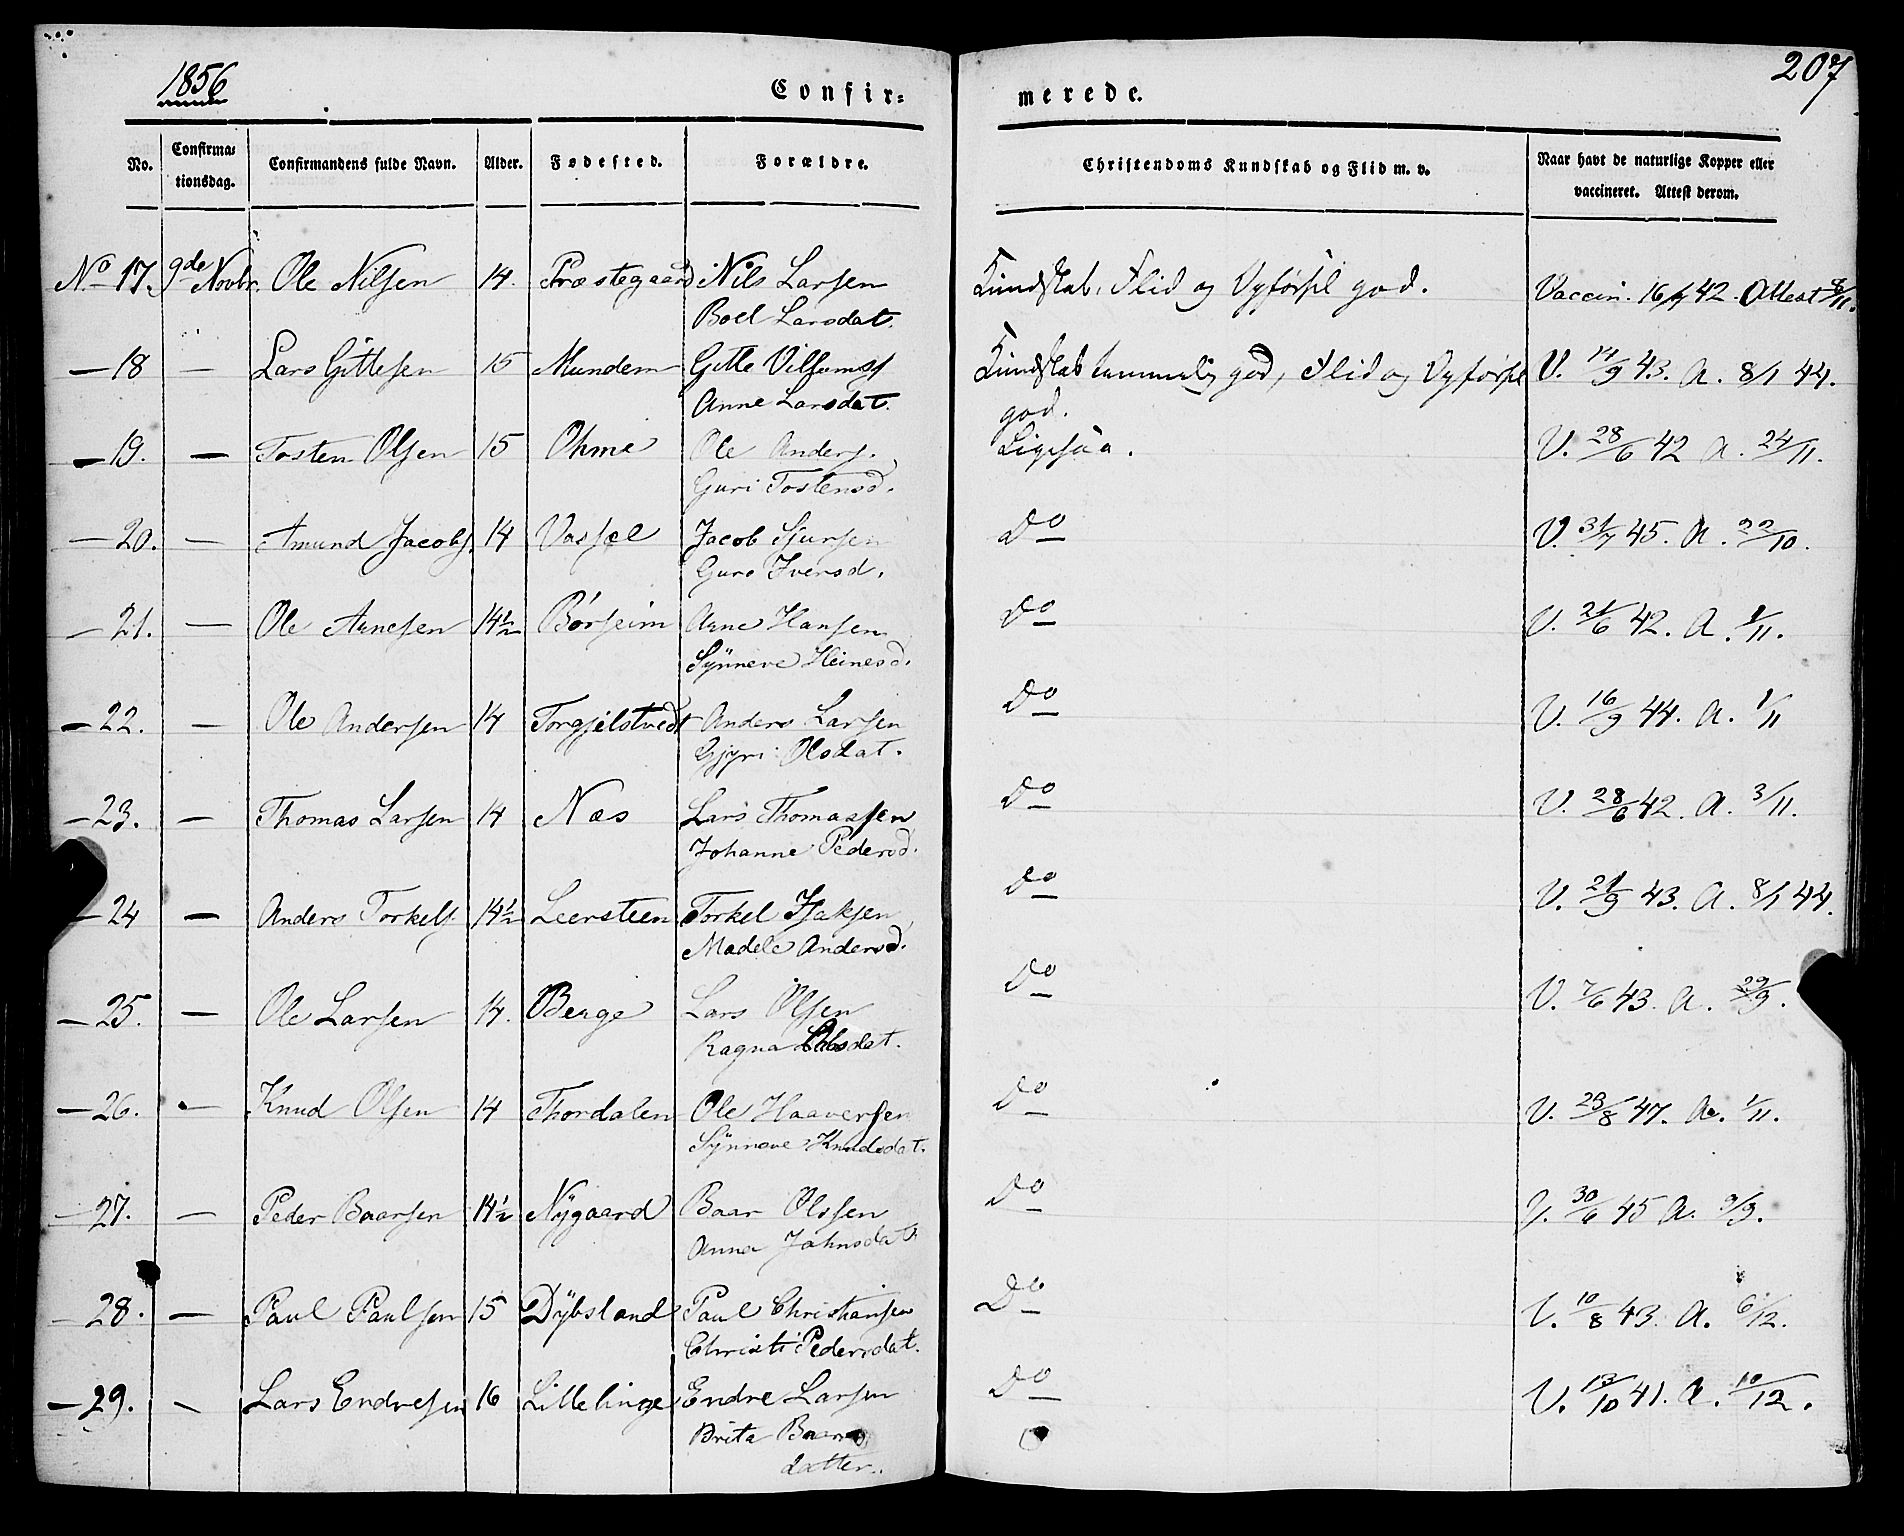 1856
Confir=
merede.
207
No.
Confirma=
tionsdag.
Confirmandens fulde Navn.
Alder.
Fødested.
Forældre.
Christendoms Kundskab og Flid m. v.
Naar havt de naturlige Kopper eller
vaccineret. Attest derom.
No 17. 9de Novbr. Ole Nilsen 14. Præstegaard Nils Larsen Kundskab, Flid og Opførsel god. Vaccin. 16/7 42. Attest 8/11.
Boel Larsdat.
— 18 — Lars Gittesen 15 Mundem Gitte Vilsoms. Kundskab temmelig god, Flid og Opførsel V. 14/9 43. A. 8/1 44.
Anne Larsdat. god.
— 19. — Tosten Olsen 15 Ohme Ole Anders. Ligesaa. V. 28/6 42 A. 24/11.
Guri Tostensd.
— 20. — Amund Jacobs. 14 Vassel Jacob Sjursen Do V. 31/7 45. A. 22/10.
Guro Iversd.
— 21. — Ole Arnesen 14½ Børseim Arne Hansen Do V. 21/6 42. A. 1/11.
Synneve Heinesd.
— 22. — Ole Andersen 14 Torgjelstvedt Anders Larsen Do V. 16/9 44. A. 1/11
Gjyri Olsdat.
— 23. — Thomas Larsen 14 Næs Lars Thomassen Do V. 28/6 42. A. 3/11.
Johanne Pedersd.
— 24 — Anders Torkels. 14½ Leersteen Torkel Isaksen Do V. 21/9 43. A. 8/1 44.
Madele Andersd.
— 25. — Ole Larsen 14. Berge Lars Olsen Do V. 7/6 43. A. 29/9.
Ragna
— 26. — Knud Olsen 14 Thordalen Ole Haaversen Do V. 23/8 47. A. 1/11.
Synneve Knudsdat.
— 27. — Peder Baarsen 14½ Nygaard Baar Olssen Do V. 30/6 45 A. 9/9.
Anna Johnsdat.
— 28. — Paul Paulsen 15 Dybsland Paul Christiansen Do V. 10/8 43. A. 6/12.
Christi Pedersdat.
— 29. — Lars Endresen 16 Lillelinge Endre Larsen Do V. 13/10 41. A. 10/12.
Brita Baars
datter.